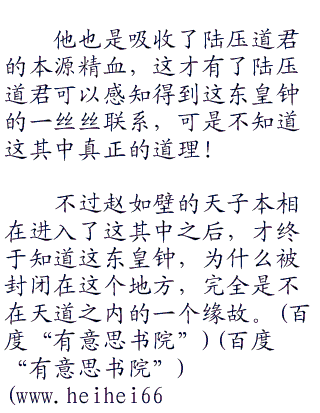 他也是吸收了陆压道君
的本源精血，这才有了陆压
道君可以感知得到这东皇钟
的一丝丝联系，可是不知道
这其中真正的道理！
不过赵如壁的天子本相
在进入了这其中之后，才终
于知道这东皇钟，为什么被
封闭在这个地方，完全是不
在天道之内的一个缘故。(百
度“有意思书院”)(百度
“有意思书院”)
(www.heihei66